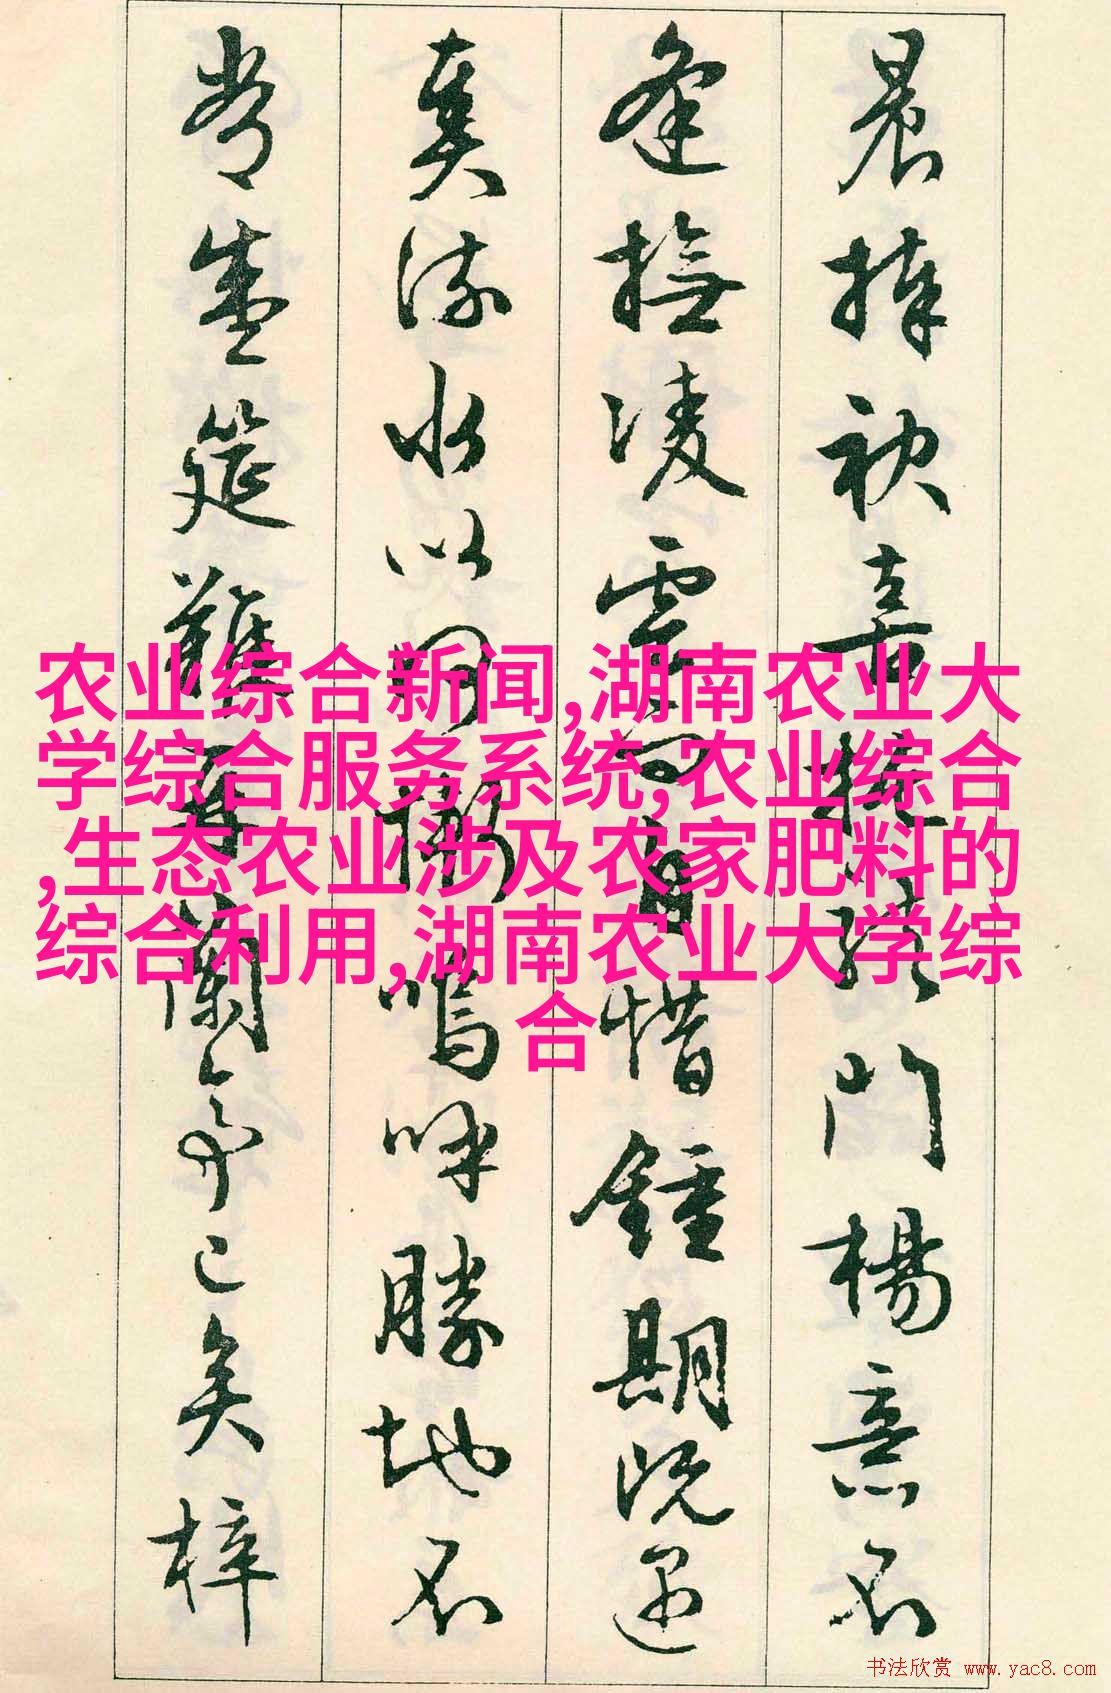 晨捧袂喜托龍門楊意不
逢撫凌雲而自惜鍾期既遇
奏流水以何慚嗚呼勝地不
常盛筵難再蘭亭已矣梓
农业综合新闻,湖南农业大
学综合服务系统,农业综合
,生态农业涉及农家肥料的
综合利用,湖南农业大学综
合
书法欣赏 www.yac8.com